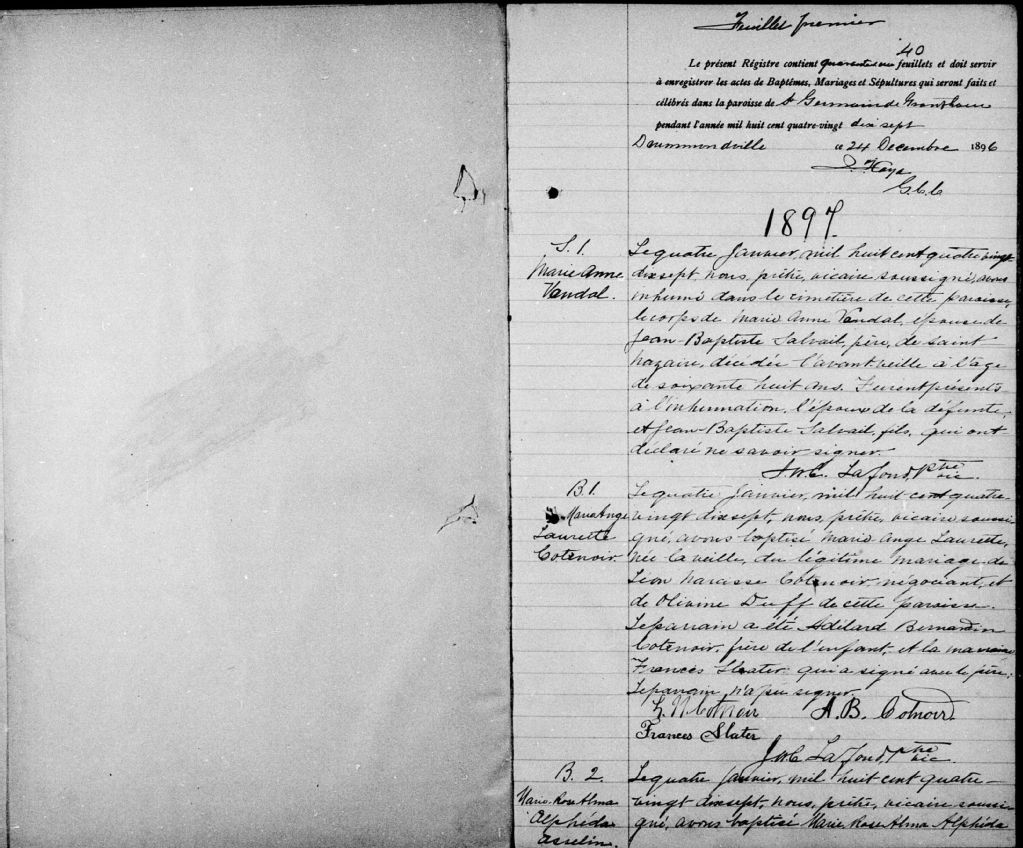 Feuillet premier
40
Le présent Régistre contient quarante feuillets et doit servir
à enregistrer les actes de Baptêmes, Mariages et Sépultures qui seront faits et
célébrés dans la paroisse de St Germain de Grantham
pendant l'année mil huit cent quatre-vingt dix sept
Drummondville ce 24 Decembre 1896
G.C.C
1897.
S. 1.
Marie Anne
Vandal.
Le quatre Janvier, mil huit cent quatre vingt
dix sept, nous, prêtre, vicaire soussigné, avons
inhumé dans le cimetière de cette paroisse,
le corps de Marie Anne Vandal, épouse de
Jean-Baptiste Salvail, père, de saint
Nazaire, décédée l'avant-veille à l'âge
de soixante huit ans. Furent présents
à l'inhumation, l'époux de la défunte,
et Jean-Baptiste Salvail, fils, qui ont
déclaré ne savoir signer.
J.W.C. Lafond, Ptre vic.
B. 1.
Marie Ange
Laurette
Cotenoir.
Le quatre Janvier, mil huit cent quatre-
vingt dix sept, nous, prêtre, vicaire soussi-
gné, avons baptisé Marie Ange Laurette,
née la veille, du légitime mariage de
Léon Narcisse Cotenoir, négociant, et
de Olivine Duff de cette paroisse.
Le parrain a été Adélard Bernardin
Cotenoir, frère de l'enfant, et la marraine
Frances Slater qui a signé avec le père;
Le parrain n'a pu signer.
L. N. Cotnoir A. B. Cotnoir
Frances Slater
J.W.C. Lafond, Ptre vic.
B. 2.
Marie-Rose Alma
Alphéda
Asselin.
Le quatre Janvier, mil huit cent quatre-
vingt dix sept, nous, prêtre, vicaire soussi-
gné, avons baptisé Marie Rose Alma Alphéda